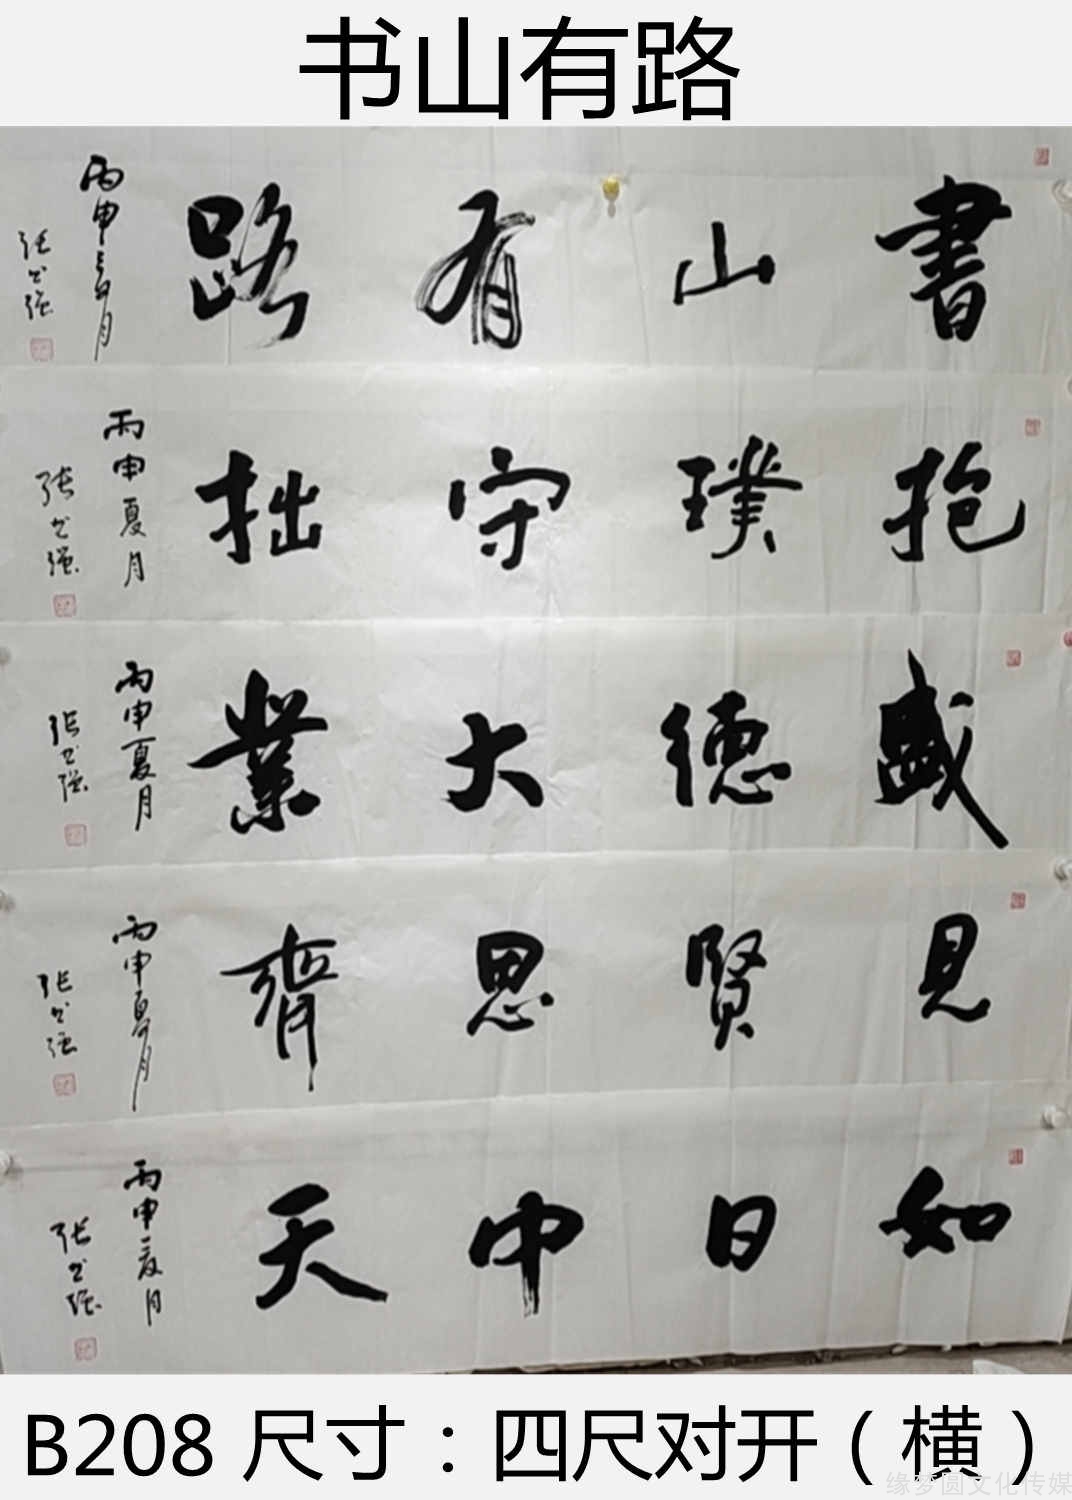 书山有路
書山有路
丙申夏月
张书强
抱璞守拙
丙申夏月
张书强
盛德大業
丙申夏月
张书强
見賢思齊
丙申夏月
张书强
如日中天
丙申夏月
张书强
B208 尺寸：四尺对开（横）
缘梦圆文化传媒